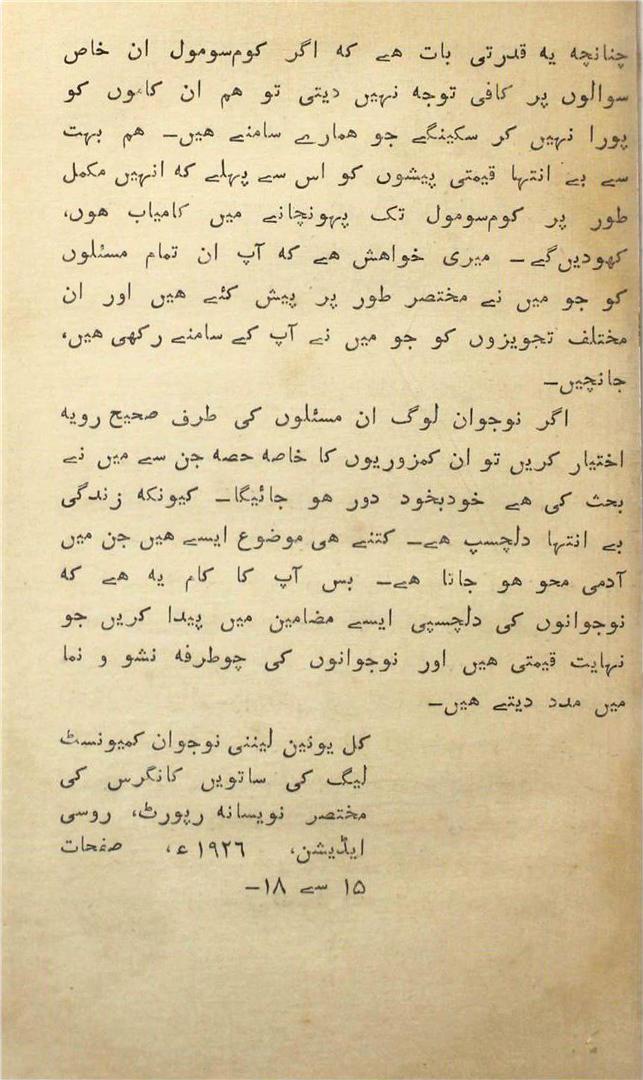 چنانچه یه قدرتی بات هے که اگر کوم‌سومول ان خاص
سوالوں پر کافی توجه نہیں دیتی تو هم ان کاموں کو
پورا نہیں کر سکینگے جو همارے سامنے هیں۔ هم بہت
سے بے انتہا قیمتی پیشوں کو اس سے پہلے که انہیں مکمل
طور پر کوم‌سومول تک پہونچانے میں کامیاب هوں،
کھودیں‌گے۔ میری خواهش هے که آپ ان تمام مسئلوں
کو جو میں نے مختصر طور پر پیش کئے هیں اور ان
مختلف تجویزوں کو جو میں نے آپ کے سامنے رکھی هیں،
جانچیں۔
اگر نوجوان لوگ ان مسئلوں کی طرف صحیح رویه
اختیار کریں تو ان کمزوریوں کا خاصه حصه جن سے میں نے
بحث کی هے خودبخود دور هو جائیگا۔ کیونکه زندگی
بے انتہا دلچسپ هے۔ کتنے هی موضوع ایسے هیں جن میں
آدمی محو هو جاتا هے۔ بس آپ کا کام یه هے که
نوجوانوں کی دلچسپی ایسے مضامین میں پیدا کریں جو
نہایت قیمتی هیں اور نوجوانوں کی چوطرفه نشو و نما
میں مدد دیتے هیں۔
کل یونین لیننی نوجوان کمیونسٹ
لیگ کی ساتویں کانگرس کی
مختصر نویسانه رپورٹ، روسی
ایڈیشن، ۱۹۲٦ء، صفحات
۱۵ سے ۱۸۔